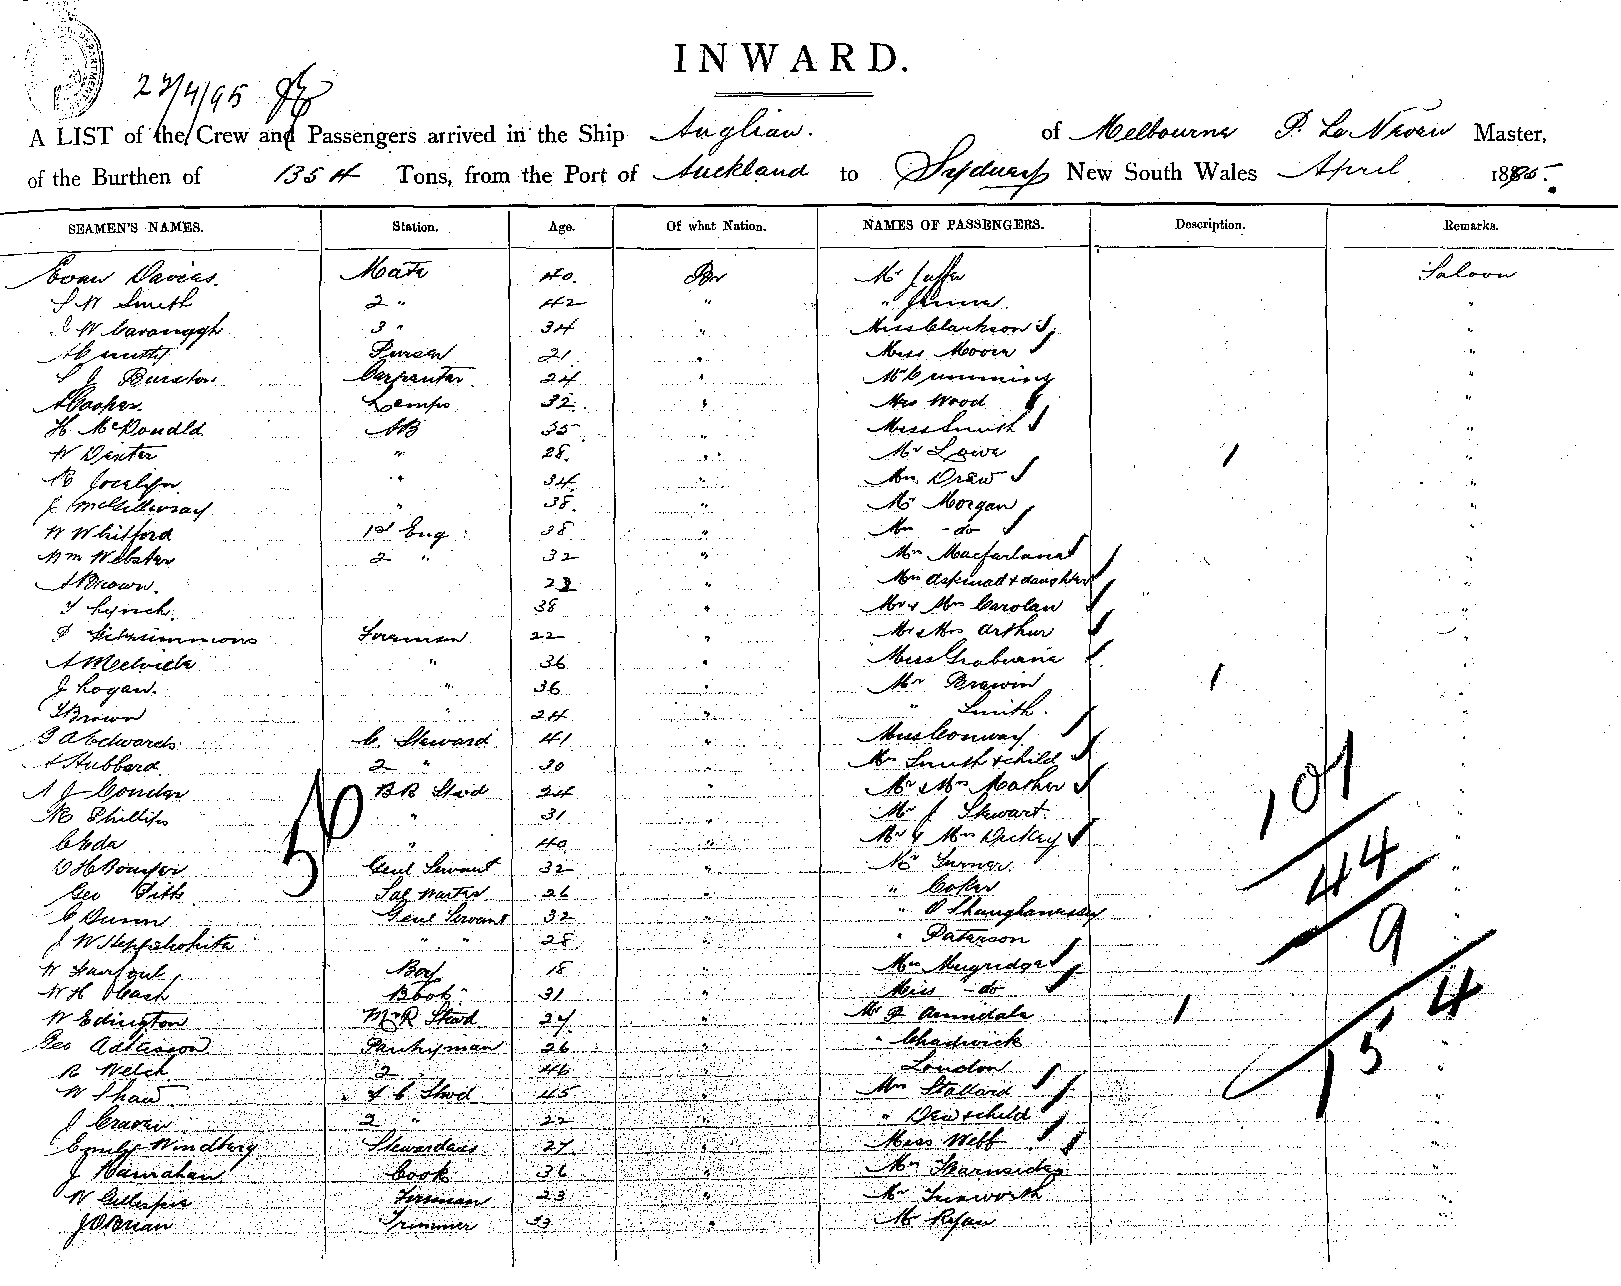 INWARD.
22/4/95
A LIST of the Crew and Passengers arrived in the Ship Anglian. of Melbourne P. Le Neven Master,
of the Burthen of 1354 Tons, from the Port of Auckland to Sydney New South Wales April 1895.
SEAMEN'S NAMES. Station. Age. Of what Nation. NAMES OF PASSENGERS. Description. Remarks.
Evan Davies. Mate 40 Br Mr Saloon
S W Smith 2 " 42 " " "
W Cavanagh 3 " 34 " Miss Clarkson "
Purser 21 " Miss Moore "
S J Burston Carpenter 24 " Mr Cumming "
A Cooper. Lamps 32 " Mrs Wood "
H McDonald AB 35 " Miss Smith "
W Dexter " 28 " Mr Lowe 1 "
R Jocelyn " 34 " Mrs Drew "
J McGillivray " 38 " Mr Morgan "
W Whitford 1st Eng 38 " Mrs - do "
Wm Webster 2 " 32 " Mrs Macfarlane "
A Brown. 23 " Mrs Aspinall & daughter "
T Lynch. 38 " Mr & Mrs Carolan "
P Fitzsimmons Foreman 22 " Mr & Mrs Arthur "
A Melville " 36 " Miss "
J Logan. " 36 " Mr Brewin 1 "
Brown " 24 " " Smith. "
Edwards C. Steward 41 " Miss Conway "
A Hubbard. 2 " 30 " Mrs Smith & child "
A J Conder BR Stwd 24 " Mr & Mrs Masher "
Phillips " 31 " Mr J Stewart. "
" 40 " Mr & Mrs Dickey "
Genl Servant 32 " Mr Turner. "
Geo Pitts Sal Waiter 26 " " Coker "
C Dunn Genl Servant 32 " " O Shaughanessy "
J W " " 28 " " Paterson "
W Boy 18 " Mrs Mugridge "
W H 31 " Miss - do "
W Edington M R Stwd 27 " Mr Annidale 1 "
Geo Adkinson Pantryman 26 " " Chadwick "
R Welch 2 46 " London "
W Shaw F C Stwd 45 " Mrs Stallard "
J Craven 2 " 22 " " Dew & child "
Emily Windberg Stewardess 27 " Miss Webb "
J Hanrahan Cook 36 " Mrs Fearnsides "
W Gillespie Fireman 23 " Mr "
J O'Brian Trimmer 33 " Mr Ryan
56
101
44
9
4
15